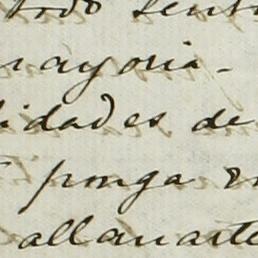 todo senti
mayoria-
lidades de
ponga en
allanarte